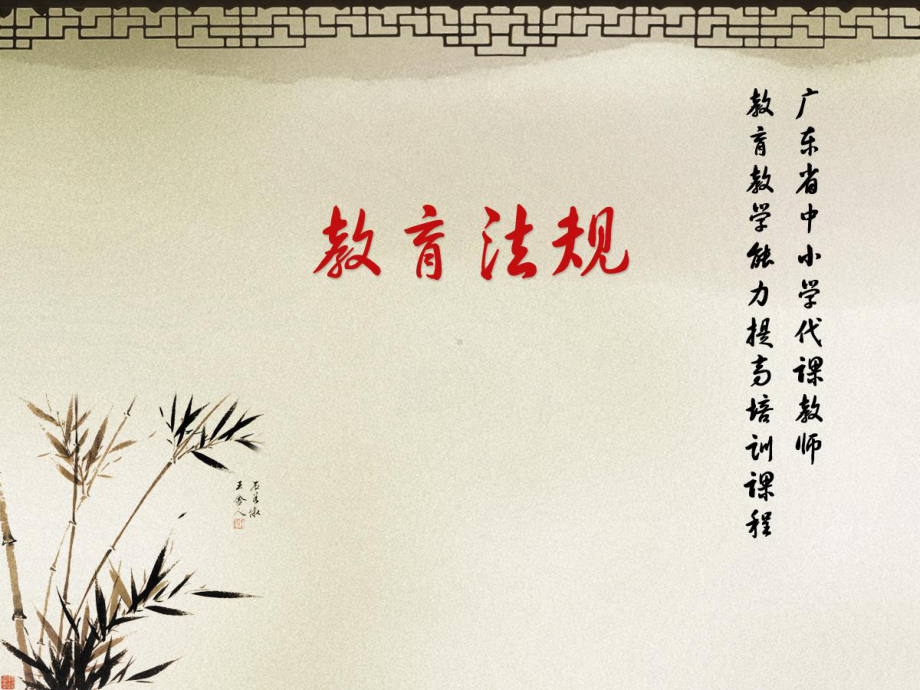 教育法规
广东省中小学代课教师
教育教学能力提高培训课程